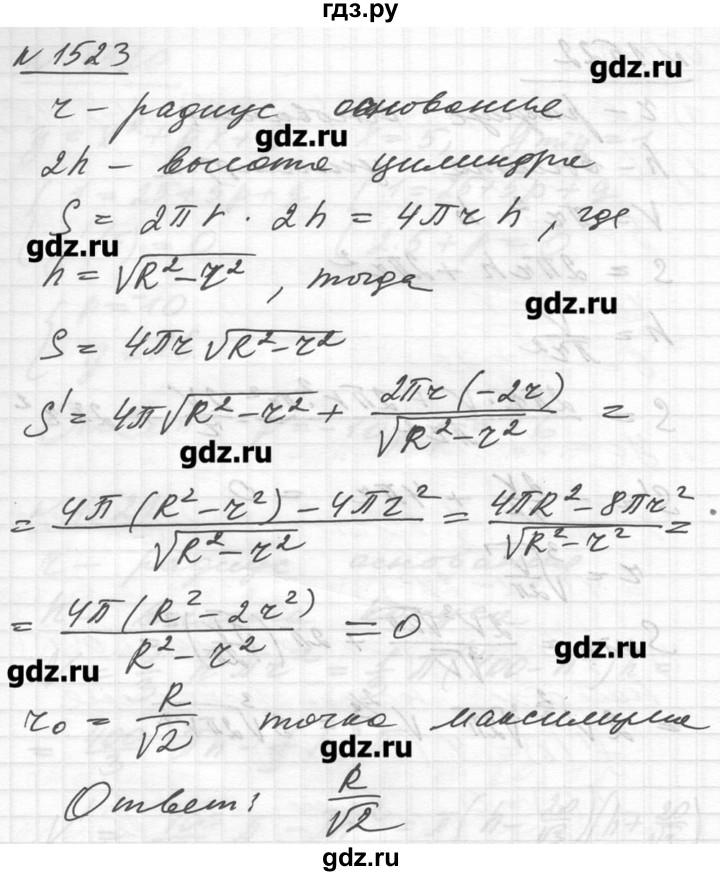 гдз.ру
№ 1523
gdz.ru
r – радиус основание
gdz.ru
2h – высота цилиндра
S = 2πr · 2h = 4πrh, где
gdz.ru
h = √(R² – r²), тогда
gdz.ru
S = 4πr √(R² – r²)
S' = 4π√(R² – r²) + 2πr(–2r) / √(R² – r²) =
gdz.ru
= (4π(R² – r²) – 4πr²) / √(R² – r²) = (4πR² – 8πr²) / √(R² – r²) =
= 4π(R² – 2r²) / (R² – r²) = 0
gdz.ru
gdz.ru
r₀ = R/√2 точка максимума
gdz.ru
Ответ: R/√2
gdz.ru